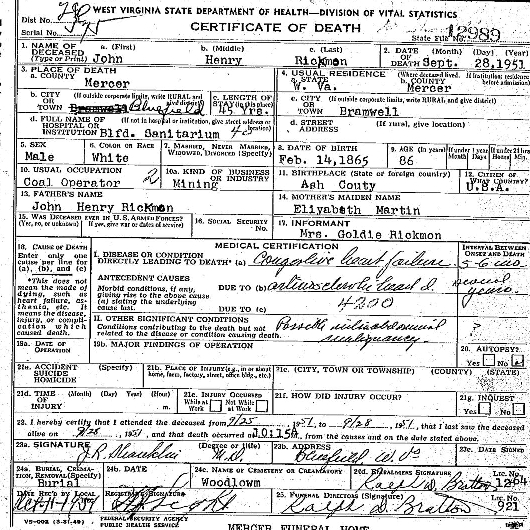 WEST VIRGINIA STATE DEPARTMENT OF HEALTH—DIVISION OF VITAL STATISTICS
CERTIFICATE OF DEATH
Dist No.
Serial No.
State File No. 12989
1. NAME OF DECEASED (Type or Print) a. (First) John b. (Middle) Henry c. (Last) Rickmon
2. DATE OF DEATH (Month) (Day) (Year) Sept. 28, 1951
3. PLACE OF DEATH
a. COUNTY Mercer
4. USUAL RESIDENCE (Where deceased lived. If institution: residence before admission)
a. STATE W. Va. b. COUNTY Mercer
b. CITY OR TOWN (If outside corporate limits, write RURAL and give district) Bramwell Bluefield
c. LENGTH OF STAY (in this location) 15 Yrs.
c. CITY OR TOWN (If outside corporate limits, write RURAL and give district) Bramwell
d. FULL NAME OF HOSPITAL OR INSTITUTION (If not in hospital or institution, give street address or location) Blfd. Sanitarium
d. STREET ADDRESS (If rural, give location)
5. SEX Male
6. COLOR OR RACE White
7. MARRIED, NEVER MARRIED, WIDOWED, DIVORCED (Specify)
8. DATE OF BIRTH Feb. 14, 1865
9. AGE (In years) 86 If under 1 year Months Days If under 24 hrs Hours Min.
10. USUAL OCCUPATION Coal Operator 2
10a. KIND OF BUSINESS OR INDUSTRY Mining
11. BIRTHPLACE (State or foreign country) Ash Couty
12. CITIZEN OF WHAT COUNTRY? U.S.A.
13. FATHER'S NAME John Henry Rickmon
14. MOTHER'S MAIDEN NAME Eliyabeth Martin
15. WAS DECEASED EVER IN U.S. ARMED FORCES? (Yes, no, or unknown) (If yes, give war or dates of service)
16. SOCIAL SECURITY No.
17. INFORMANT Mrs. Goldie Rickmon
MEDICAL CERTIFICATION
18. CAUSE OF DEATH
Enter only one cause per line for (a), (b), and (c)
*This does not mean the mode of dying, such as heart failure, asthenia, etc. It means the disease, injury, or complication which caused death.
I. DISEASE OR CONDITION DIRECTLY LEADING TO DEATH* (a) Congestive heart failure
INTERVAL BETWEEN ONSET AND DEATH 5-6 mo.
ANTECEDENT CAUSES
Morbid conditions, if any, giving rise to the above cause (a) stating the underlying cause last.
DUE TO (b) arteriosclerotic heart d. several years.
DUE TO (c) 4200
II. OTHER SIGNIFICANT CONDITIONS
Conditions contributing to the death but not related to the disease or condition causing death.
Possible intraabdominal malignancy. ?
19a. DATE OF OPERATION
19b. MAJOR FINDINGS OF OPERATION
20. AUTOPSY? Yes No
21a. ACCIDENT SUICIDE HOMICIDE (Specify)
21b. PLACE OF INJURY (e.g., in or about home, farm, factory, street, office bldg., etc.)
21c. (CITY, TOWN OR TOWNSHIP) (COUNTY) (STATE)
21d. TIME OF INJURY (Month) (Day) (Year) (Hour) m.
21e. INJURY OCCURRED While at Work Not While at Work
21f. HOW DID INJURY OCCUR?
21g. INQUEST Yes No
22. I hereby certify that I attended the deceased from 9/25 1951, to 9/28 1951, that I last saw the deceased
alive on 9/28, 1951 and that death occurred at 10:15A m., from the causes and on the date stated above.
23a. SIGNATURE (Degree or title) M.D.
23b. ADDRESS
23c. DATE SIGNED
24a. BURIAL, CREMATION, REMOVAL (Specify) Burial
24b. DATE
24c. NAME OF CEMETERY OR CREMATORY Woodlowm
24d. EMBALMERS SIGNATURE Ralph D. Bratton Lic. No. 1264
DATE REC'D BY LOCAL REG.
REGISTRAR'S SIGNATURE
25. FUNERAL DIRECTORS (Signature) Ralph D. Bratton Lic. No. 921
VS-002 (3-31-49)
FEDERAL SECURITY AGENCY
PUBLIC HEALTH SERVICE
MERCER FUNERAL HOME